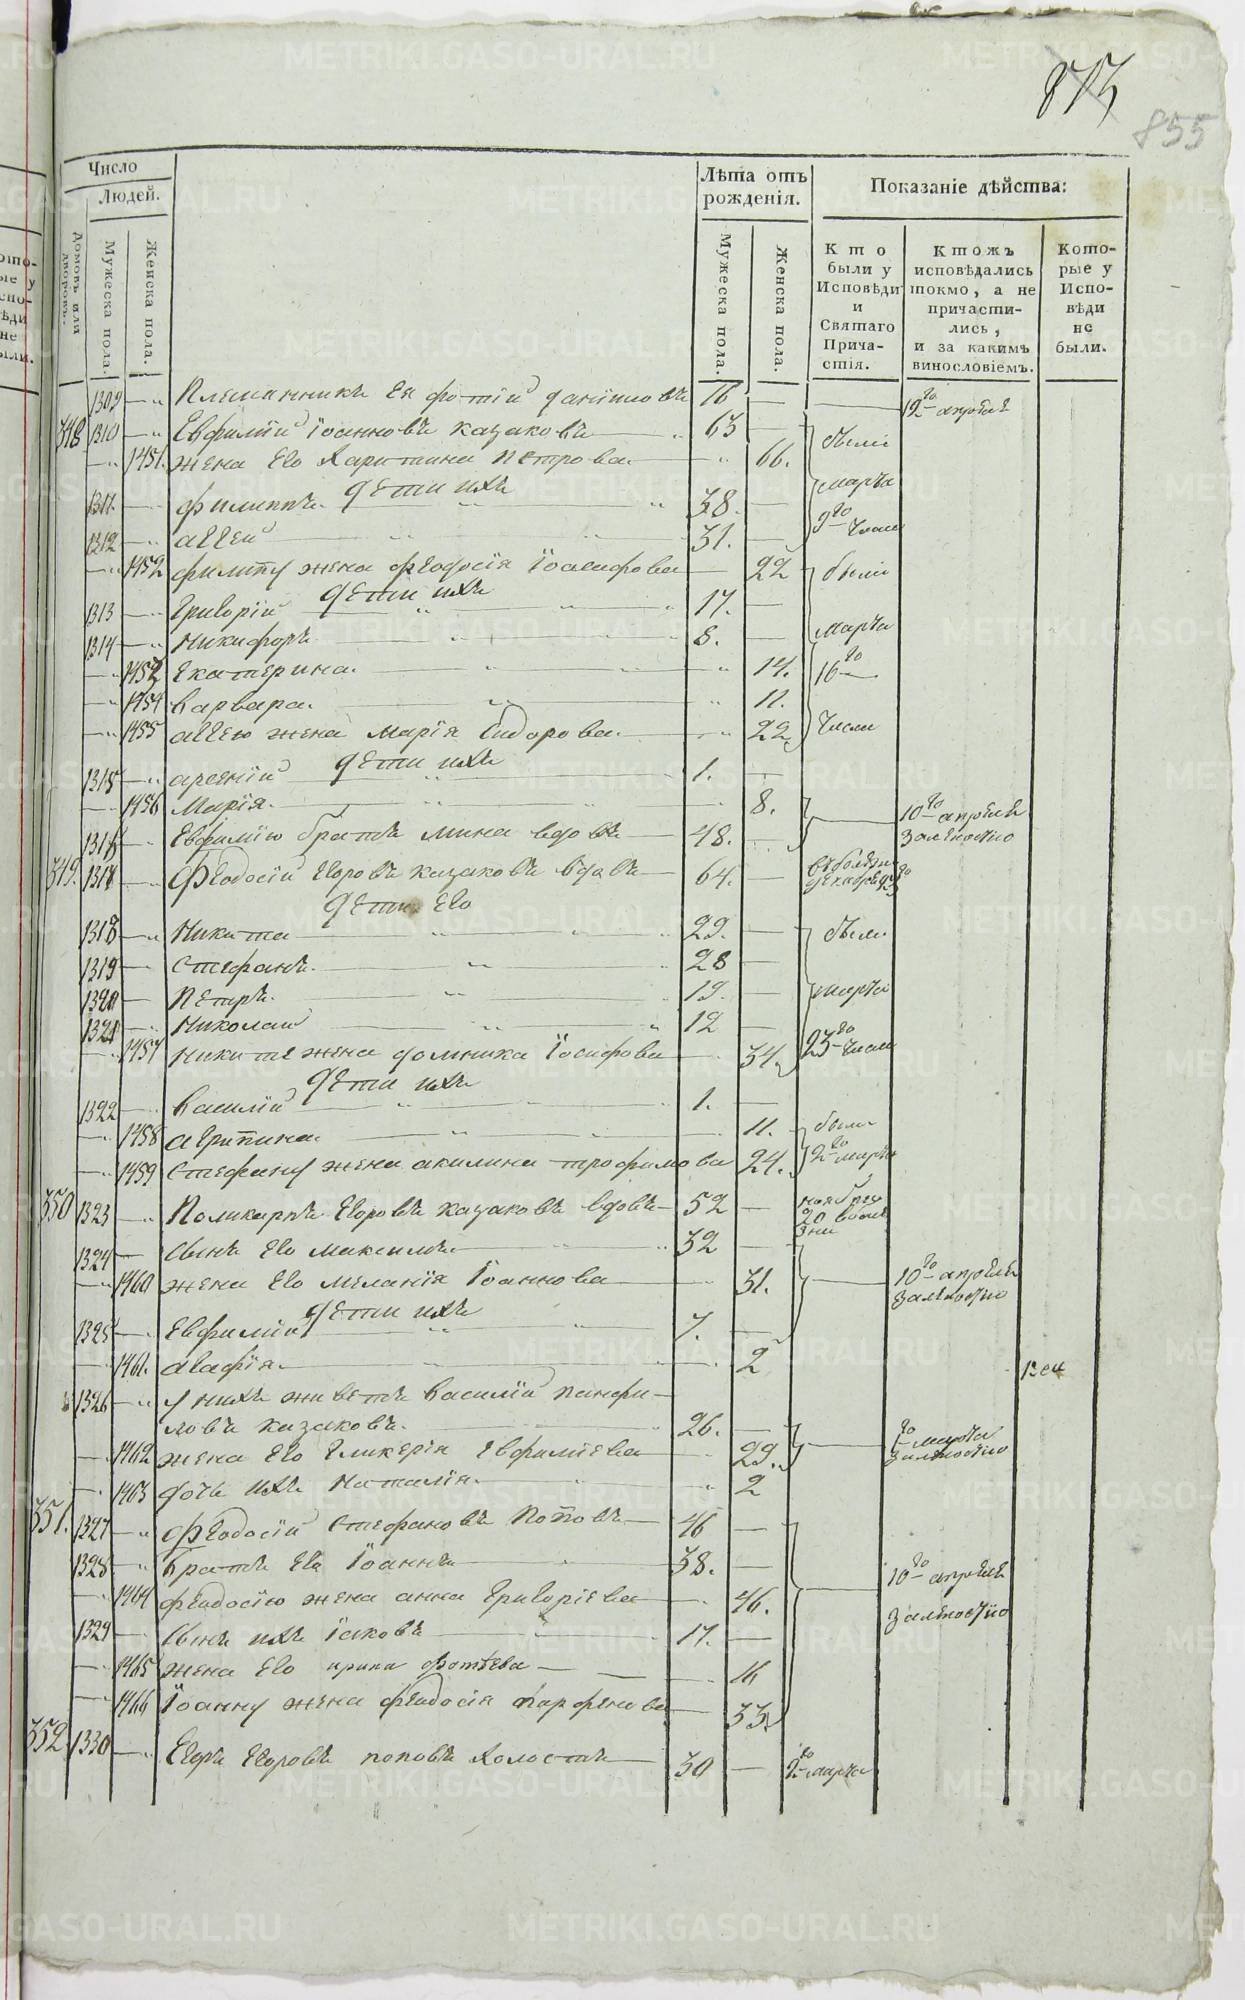 813
855
Число
Людей.
Домовъ или дворовъ.
Мужеска пола.
Женска пола.
Лѣта отъ рожденія.
Мужеска пола.
Женска пола.
Показаніе дѣйства:
Кто были у Исповѣди и Святаго Причастія.
Ктожъ исповѣдались токмо, а не причастились, и за какимъ винословіемъ.
Которые у Исповѣди не были.
1309 Племянникъ Ея фотій даніиловъ 16 12го апрѣля
348 1310 Евфимій Іоанновъ казаковъ 63 были
1451. жена Его Харитина Петрова 66.
дети ихъ марта
1311. филиппъ. 38. 9го числа
1312 авдей 31.
1452 филиппу жена феодосія Іоасафова 22 были
дети ихъ
1313 Григорій 17.
1314 Никифоръ 8. марта
1453 Екатерина. 14. 16го
1454 варвара. 11.
1455 авдею жена марія Сидорова. 22 числа
дети ихъ
1315 арсеній 1.
1456 Марія. 8. 10го апрѣля
1316 Евфимію братъ мина вдовъ 48. залѣностію
349. 1317 Феодосій Егоровъ казаковъ вдовъ 64.
дети Его
1318 Никита 29. были
1319 Стефанъ. 28
1320 Петръ. 19. марта
1321 Николай 12
1457 Никите жена домника Іосифова 34. 23го числа
дети ихъ
1322 василій 1.
1458 агрипина. 11. были
1459 Стефану жена акилина трофимова 24. 2го марта
350 1323 Поликарпъ Егоровъ казаковъ вдовъ 52 ноября 20
1324 сынъ Его максимъ 32
1460 жена Его меланія Іоаннова 31. 10го апрѣля залѣностію
дети ихъ
1325 Евфимій 7.
1461. агафія. 2
1326 у нихъ живетъ василій панфиловъ казаковъ. 26.
1462 жена Его Гликерія Евфиміева 29. марта залѣностію
1463 дочь ихъ Наталія. 2
351. 1327 Феодосій Стефановъ Поповъ 46
1328 братъ Его Іоаннъ 38. 10го апрѣля
1464 феодосію жена анна Григоріева 46. залѣностію
1329 сынъ ихъ Іаковъ 17.
1465 жена Его ирина фотѣева 16
1466 Іоанну жена феодосія парфенова 33
352. 1330 Егоръ Егоровъ поповъ холостъ 30 2го марта
METRIKI.GASO-URAL.RU